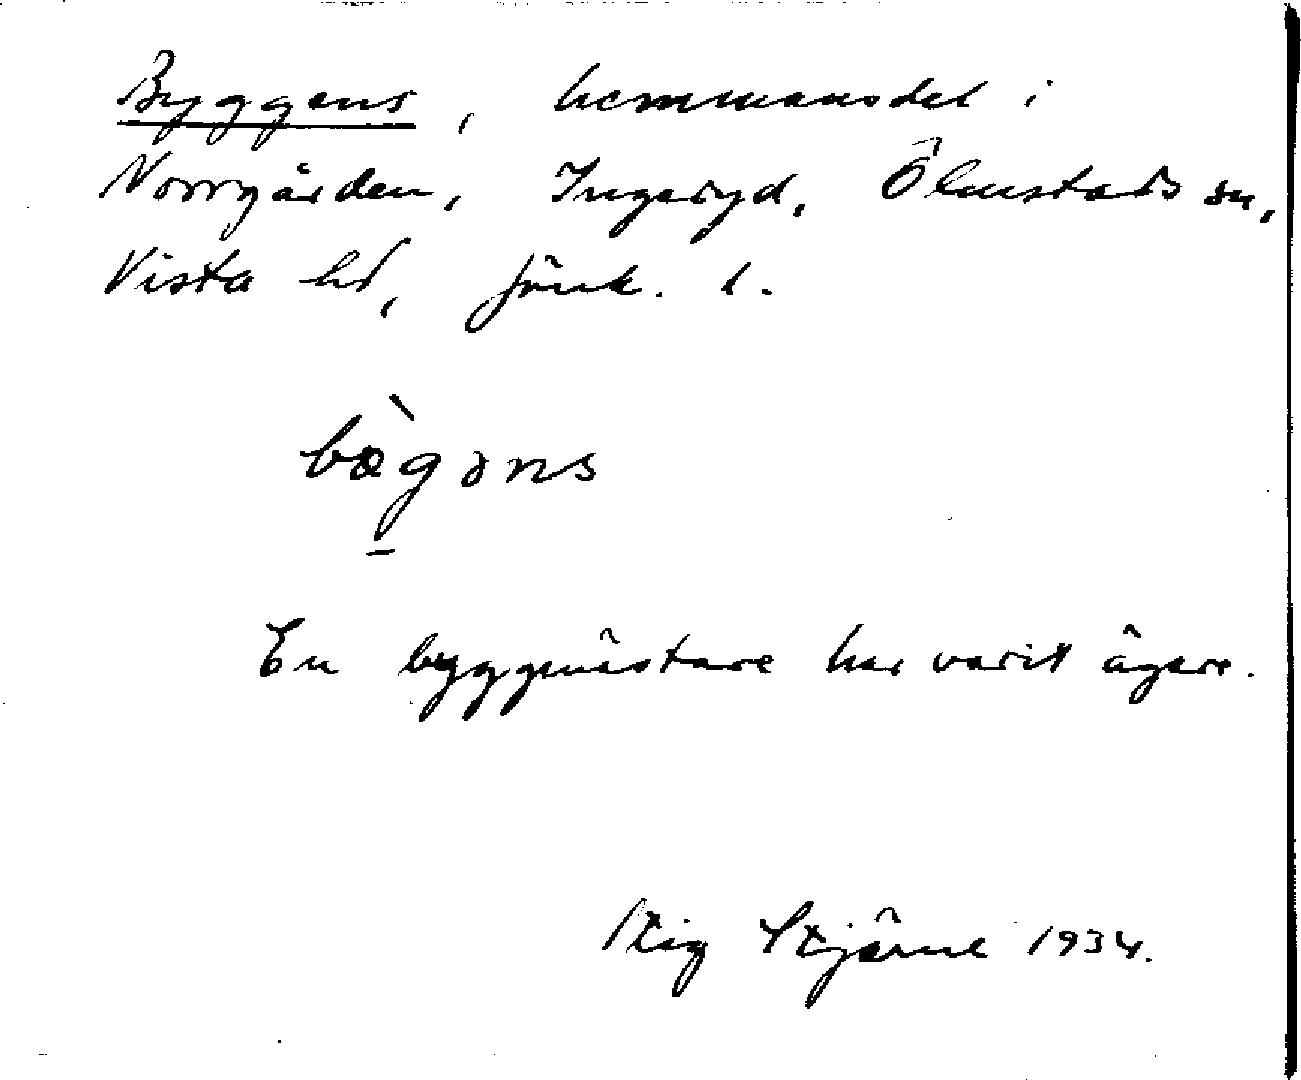 Byggens, hemmansdel i
Norrgården, Ingaryd, Ölmstads sn,
Vista hd, Jönk. l.
bæ̀gəns
En byggmästare har varit ägare.
Stig Stjärne 1934.